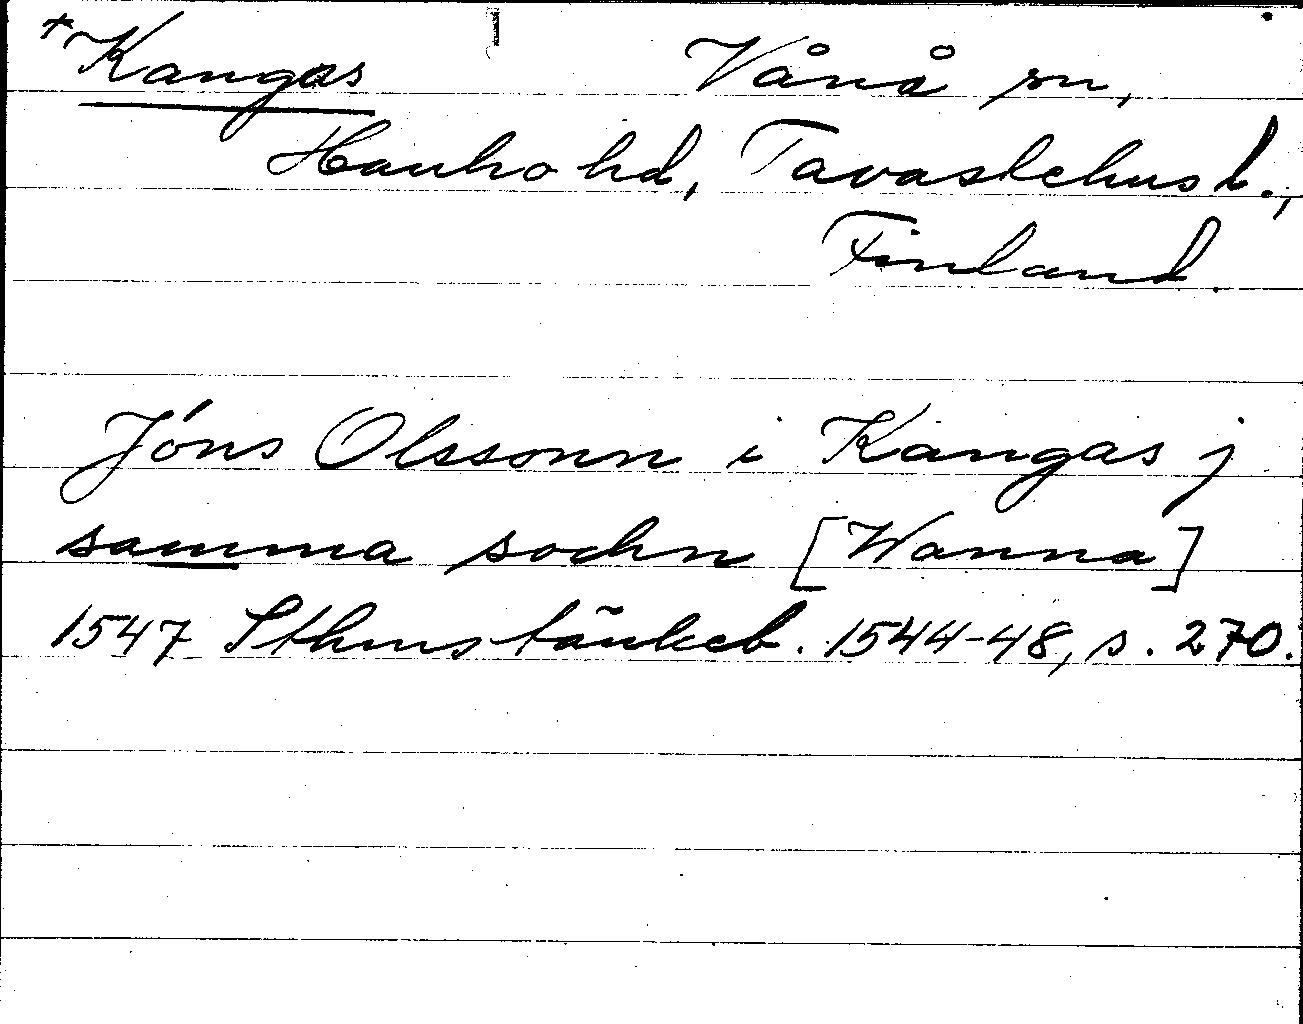 +Kangas Vånå sn,
Hauho hd, Tavastehus l.,
Finland.
Jóns Olssonn i Kangas j
samma sochn [Wanna]
1547 Sthms tänkeb. 1544-48, s. 270.